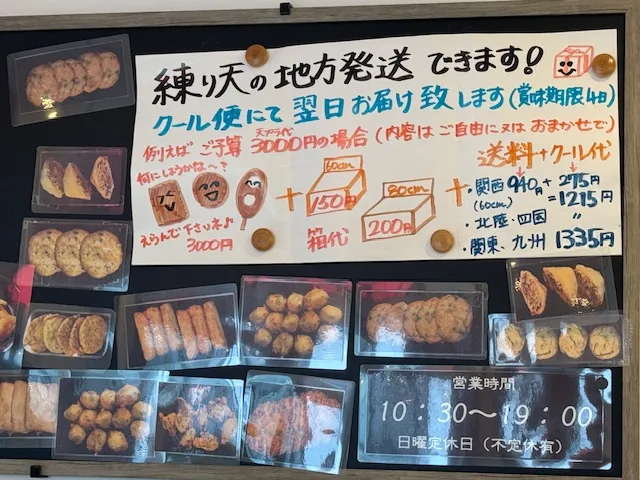 練り天の地方発送できます!
クール便にて翌日お届け致します(賞味期限4日)
例えばご予算 天プラ代 3000円の場合(内容はご自由に又はおまかせで)
何にしようかな〜?
えらんで下さいネ♪
3000円
+
60cm
150円
80cm
200円
箱代
+
送料+クール代
・関西 940円+275円
(60cm) =1215円
・北陸・四国 〃
・関東、九州 1335円
営業時間
10:30〜19:00
日曜定休日(不定休有)